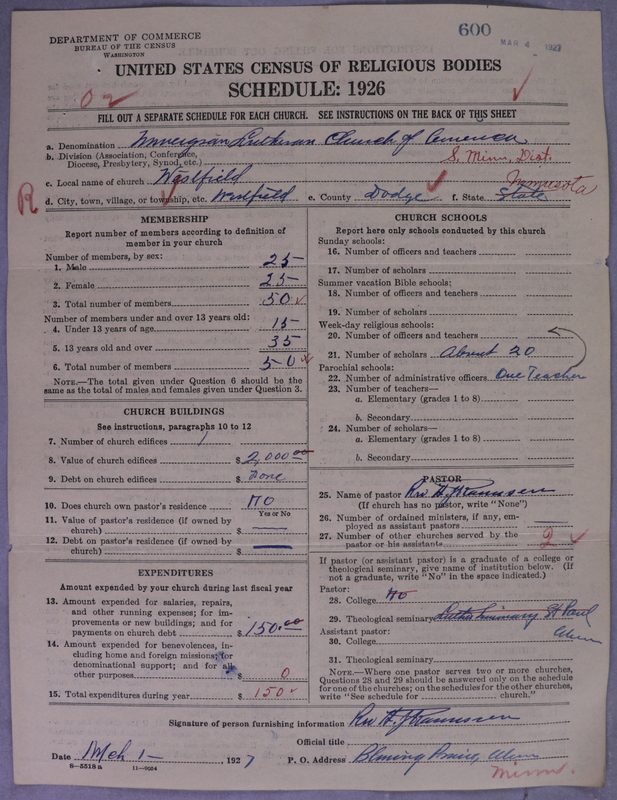 600
MAR 4 1927
DEPARTMENT OF COMMERCE
BUREAU OF THE CENSUS
WASHINGTON
UNITED STATES CENSUS OF RELIGIOUS BODIES
SCHEDULE: 1926
FILL OUT A SEPARATE SCHEDULE FOR EACH CHURCH. SEE INSTRUCTIONS ON THE BACK OF THIS SHEET
a. Denomination Norwegian Lutheran Church of America
b. Division (Association, Conference, S. Minn. Dist.
Diocese, Presbytery, Synod, etc.)
c. Local name of church Westfield Minnesota
R d. City, town, village, or township, etc. Westfield e. County Dodge f. State State
MEMBERSHIP
Report number of members according to definition of
member in your church
Number of members, by sex:
1. Male 25
2. Female 25
3. Total number of members 50
Number of members under and over 13 years old:
4. Under 13 years of age 15
5. 13 years old and over 35
6. Total number of members 50
NOTE.—The total given under Question 6 should be
the same as the total of males and females given under Question 3.
CHURCH BUILDINGS
See instructions, paragraphs 10 to 12
7. Number of church edifices 1
8. Value of church edifices $ 2,000.00
9. Debt on church edifices $ None
10. Does church own pastor's residence No
Yes or No
11. Value of pastor's residence (if owned by
church) $ —
12. Debt on pastor's residence (if owned by
church) $ —
EXPENDITURES
Amount expended by your church during last fiscal year
13. Amount expended for salaries, repairs,
and other running expenses; for im-
provements or new buildings; and for
payments on church debt $ 150.00
14. Amount expended for benevolences, in-
cluding home and foreign missions; for
denominational support; and for all
other purposes $ 0
15. Total expenditures during year $ 150
CHURCH SCHOOLS
Report here only schools conducted by this church
Sunday schools:
16. Number of officers and teachers
17. Number of scholars
Summer vacation Bible schools:
18. Number of officers and teachers
19. Number of scholars
Week-day religious schools:
20. Number of officers and teachers
21. Number of scholars About 20
Parochial schools:
22. Number of administrative officers One Teacher
23. Number of teachers—
a. Elementary (grades 1 to 8)
b. Secondary
24. Number of scholars—
a. Elementary (grades 1 to 8)
b. Secondary
PASTOR
25. Name of pastor Rev H J Rasmussen
(If church has no pastor, write "None")
26. Number of ordained ministers, if any, em-
ployed as assistant pastors —
27. Number of other churches served by the
pastor or his assistants 2
If pastor (or assistant pastor) is a graduate of a college or
theological seminary, give name of institution below. (If
not a graduate, write "No" in the space indicated.)
Pastor:
28. College No
29. Theological seminary Luther Seminary St Paul
Assistant pastor: Minn
30. College
31. Theological seminary
NOTE.—Where one pastor serves two or more churches,
Questions 28 and 29 should be answered only on the schedule
for one of the churches; on the schedules for the other churches,
write "See schedule for church."
Signature of person furnishing information Rev H. J Rasmussen
Official title
Date Mch 1 — , 1927 P. O. Address Blooming Prairie, Minn
8—5518 a 11—9024 Minn.